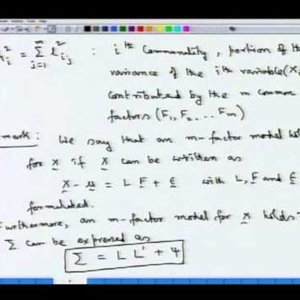 h_i^2 = Σ_{j=1}^{m} l_{ij}^2 : ith Communality, portion of the
variance of the ith variable (X_i
contributed by the m common
factors (F_1, F_2 ... F_m)
mark: We say that an m-factor model hold
for X if X can be written as
X - μ = L F + ε with L, F and ε
formulated.
urthermore, an m-factor model for X holds
Σ can be expressed as
Σ = L L' + ψ